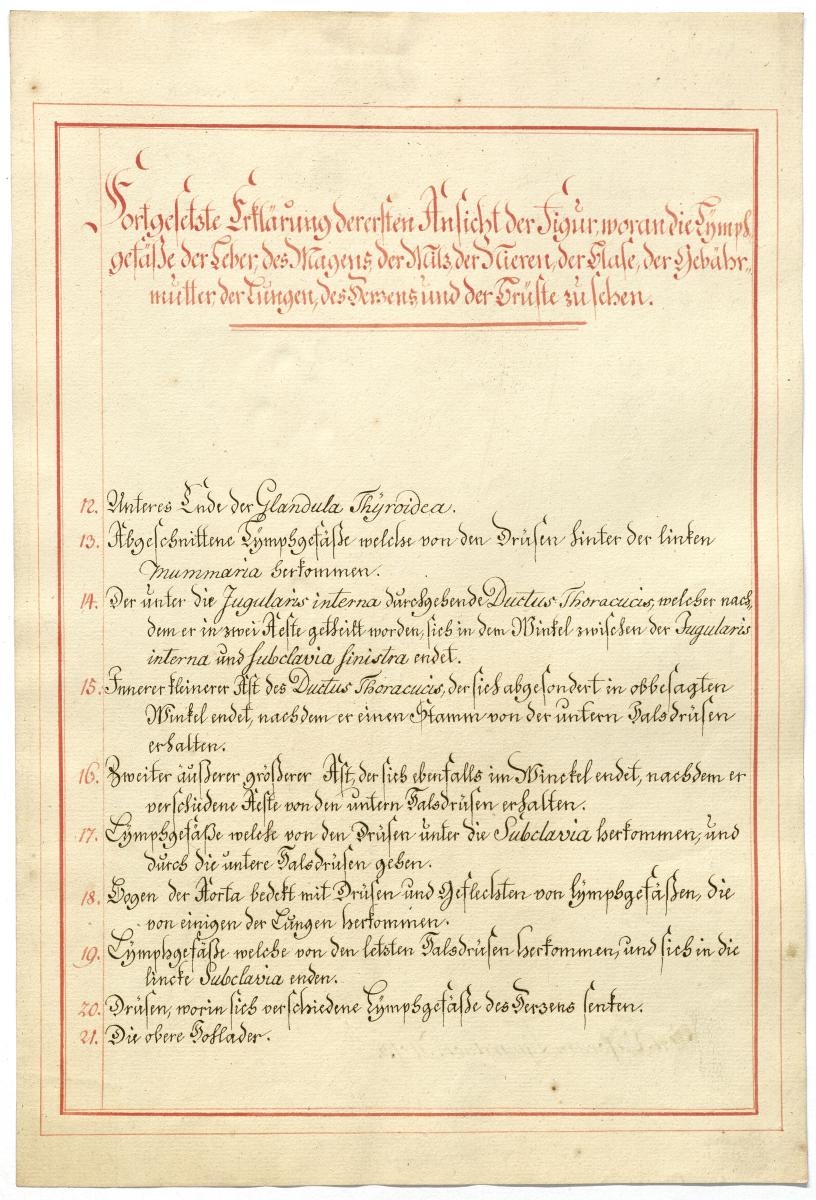 Fortgesetzte Erklärung der ersten Ansicht der Figur, woran die Lymph-
gefäße der Leber, des Magens, der Milz, der Nieren, der Blase, der Gebähr-
mutter, der Lungen, des Herzens, und der Brüste zu sehen.
12. Unteres Ende der Glandula Thÿroidea.
13. Abgeschnittene Lÿmphgefäße welche von den Drüsen hinter der linken
Mummaria herkommen.
14. Der unter die Jugularis interna durchgehende Ductus Thoracucis, welcher nach-
dem er in zwei Aeste getheilt worden, sich in dem Winkel zwischen der Jugularis
interna und Subclavia sinistra endet.
15. Innerer kleinerer Ast des Ductus Thoracucis, der sich abgesondert in obbesagten
Winkel endet, nachdem er einen Stamm von der untern Halsdrüsen
erhalten.
16. Zweiter äußerer größerer Ast, der sich ebenfalls im Winckel endet, nachdem er
verschiedene Aeste von den untern Halsdrüsen erhalten.
17. Lÿmphgefäße welche von den Drüsen unter die Subclavia herkommen, und
durch die untere Halsdrüsen gehen.
18. Bogen der Aorta bedekt mit Drüsen und Geflechten von Lÿmphgefäßen, die
von einigen der Lungen herkommen.
19. Lÿmphgefäße welche von den letzten Halsdrüsen herkommen, und sich in die
lincke Subclavia enden.
20. Drüsen, worin sich verschiedene Lÿmphgefäße des Herzens senken.
21. Die obere Hohlader.